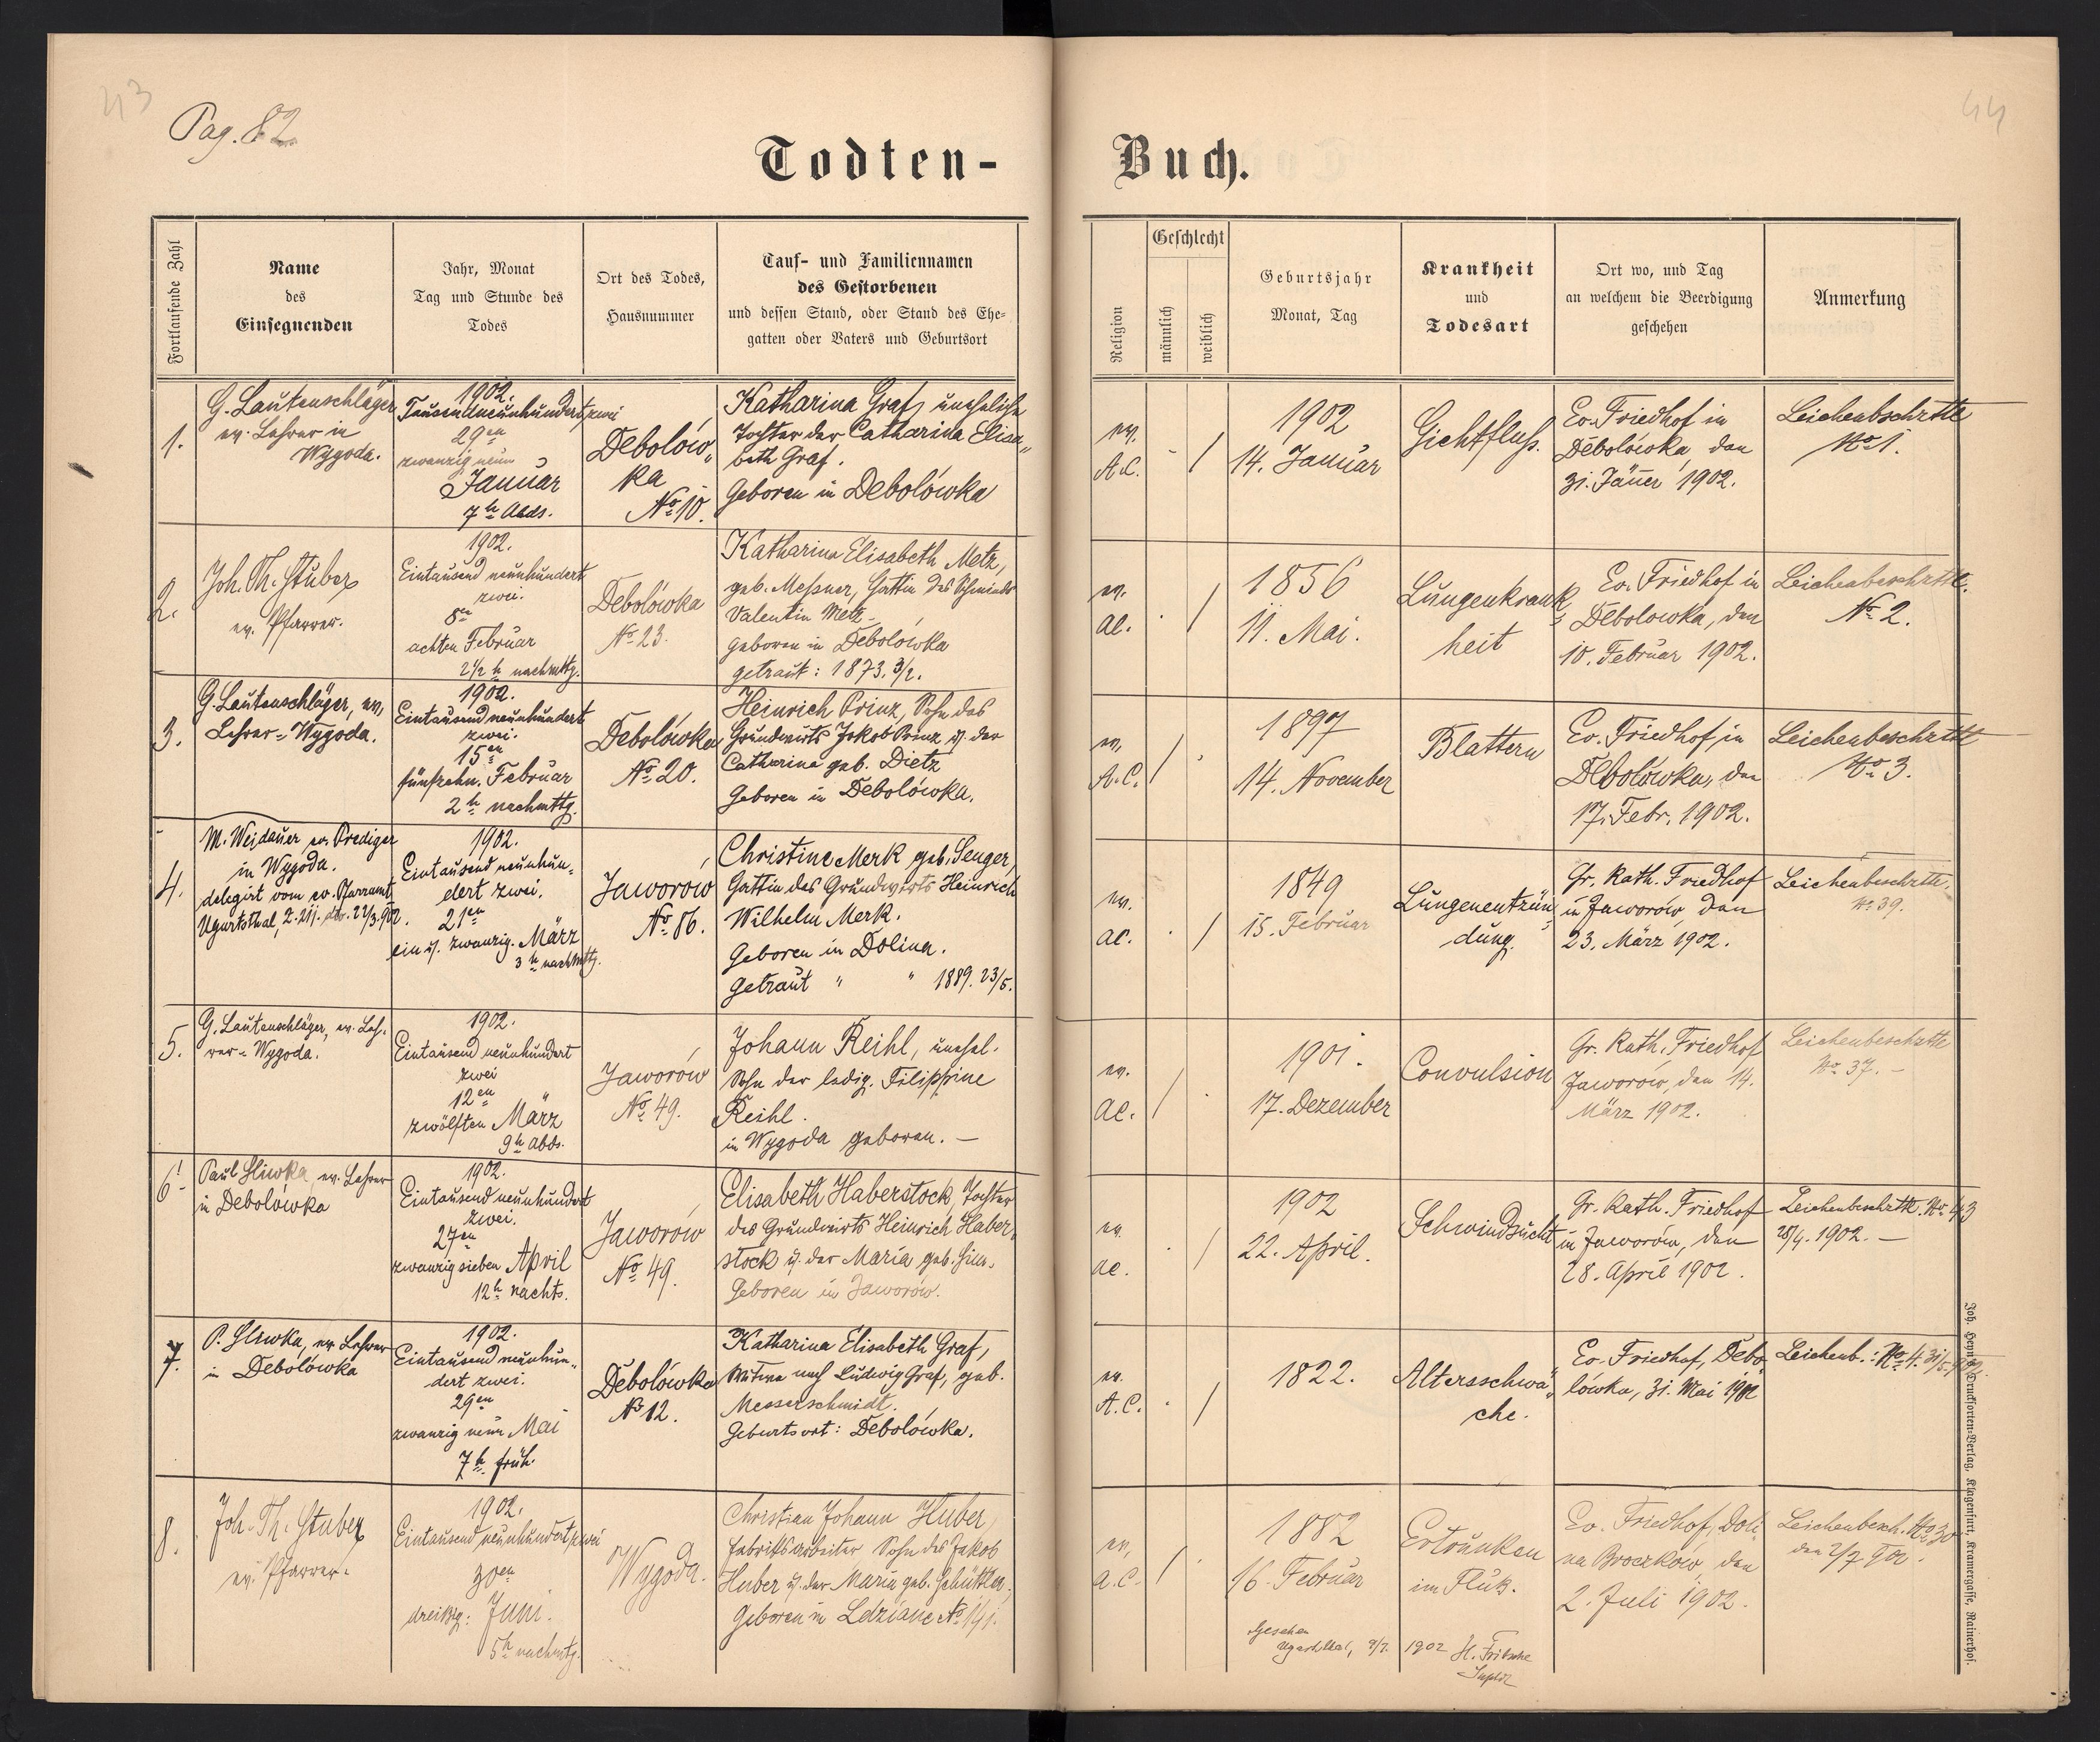 43
Pag. 82
44
Todten-
Buch.
Fortlaufende Zahl
Name
des
Einsegnenden
Jahr, Monat
Tag und Stunde des
Todes
Ort des Todes,
Hausnummer
Tauf- und Familiennamen
des Gestorbenen
und dessen Stand, oder Stand des Ehe-
gatten oder Vaters und Geburtsort
Religion
Geschlecht
männlich
weiblich
Geburtsjahr
Monat, Tag
Krankheit
und
Todesart
Ort wo, und Tag
an welchem die Beerdigung
geschehen
Anmerkung
1.
G. Lautenschläger
ev. Lehrer in
Wygoda.
1902.
Tausendneunhundertzwei
29en
zwanzig neun
Januar
7h Abds.
Debolów„
ka
No 10.
Katharina Graf, uneheliche
Tochter der Catharina Elisa„
beth Graf.
Geboren in Debolówka
ev.
A.C.
- /
1902
14. Januar
Gichtfluß.
Ev. Friedhof in
Debolówka, den
31. Jäner 1902.
Leichenbschrttl
No 1.
2.
Joh. Th. Stuber
ev. Pfarrer.
1902.
Eintausend neunhundert
zwei.
8en
achten Februar
2 1/2 h nachmttg.
Debolówka
No 23.
Katharina Elisabeth Metz,
geb. Meßner, Gattin des Schmieds
Valentin Metz.
geboren in Debolówka
getraut: 1873. 3/2.
ev.
ac.
. /
1856
11. Mai.
Lungenkrank
heit
Ev. Friedhof in
Debolowka, den
10. Februar 1902.
Leichenbeschrttl.
No 2.
3.
G. Lautenschläger, ev.
Lehrer - Wygoda.
1902.
Eintausend neunhundert
zwei.
15en
fünfzehn. Februar
2h nachmttg.
Debolówka
No 20.
Heinrich Prinz, Sohn des
Grundwirts Jakob Prinz u. der
Catharina geb. Dietz
Geboren in Debolówka.
ev.
A.C.
/ .
1897
14. November
Blattern
Ev. Friedhof in
Debolówka, den
17. Febr. 1902.
Leichenbeschrttl
No 3.
4.
M. Weidauer ev. Prediger
in Wygoda.
delegirt vom ev. Pfarramt
Ugartsthal, Z. 211. dto. 22/3. 902.
1902.
Eintausend neunhun„
dert zwei.
21en
ein u. zwanzig. März
3h nachmttg.
Jaworów
No 86.
Christine Merk geb. Senger,
Gattin des Grundwirts Heinrich
Wilhelm Merk.
Geboren in Dolina.
Getraut " " 1889. 23/5.
ev.
ac.
. /
1849
15. Februar
Lungenentzün
dung.
Gr. Kath. Friedhof
in Jaworów, den
23. März 1902.
Leichenbeschrttl.
No 39.
5.
G. Lautenschläger, ev. Leh-
rer - Wygoda.
1902.
Eintausend neunhundert
zwei
12en
zwölften März
9h abds.
Jaworów
No 49.
Johann Reihl, unehel.
Sohn der ledig. Filippine
Reihl.
in Wygoda geboren. —
ev.
ac.
/ .
1901.
17. Dezember
Convulsion
Gr. Kath. Friedhof
Jaworów, den 14.
März 1902.
Leichenbeschttl
No 37. -
6.
Paul Sliwka, ev. Lehrer
in Debolówka
1902.
Eintausend neunhundert
zwei.
27en
zwanzig sieben April
12h nachts.
Jaworów
No 49.
Elisabeth Haberstock, Tochter
des Grundwirts Heinrich Haber„
stock u. der Maria geb.
Geboren in Jaworów.
ev.
ac.
. /
1902
22. April.
Schwindsucht
Gr. Kath. Friedhof
in Jaworów, den
28. April 1902.
Leichenbeschrttl. No 43
28/4. 1902. —
7.
P. Sliwka, ev. Lehrer
in Debolówka
1902.
Eintausend neunhun„
dert zwei.
29en
zwanzig neun Mai
7h früh.
Debolówka
No 12.
Katharina Elisabeth Graf,
Witwe nach Ludwig Graf, geb.
Messerschmidt.
Geburtsort: Debolówka.
ev.
A.C.
. /
1822.
Altersschwä„
che.
Ev. Friedhof, Debo
lówka, 31. Mai 1902
Leichenb.: No 4. 31/5. 902.
8.
Joh. Th. Stuber
ev. Pfarrer.
1902.
Eintausend neunhundert zwei
30en
dreißig: Juni.
5h nachmtg.
Wygoda.
Christian Johann Huber,
Fabriksarbeiter, Sohn des Jakob
Huber u. der Maria geb. Schüttler.
Geboren in Ledziane No 141.
ev.
a.c.
/ .
1882
16. Februar
Ertrunken
im Fluß.
Ev. Friedhof, Doli
na Broczków, den
2. Juli 1902.
Leichenbesch. No 30
den 2/7 902.
Gesehen
Ugartsthal, 9/7. 1902 H. Fritsche
Joh. Heyn's Drucksorten-Verlag, Klagenfurt, Kramergasse, Rainerhof.